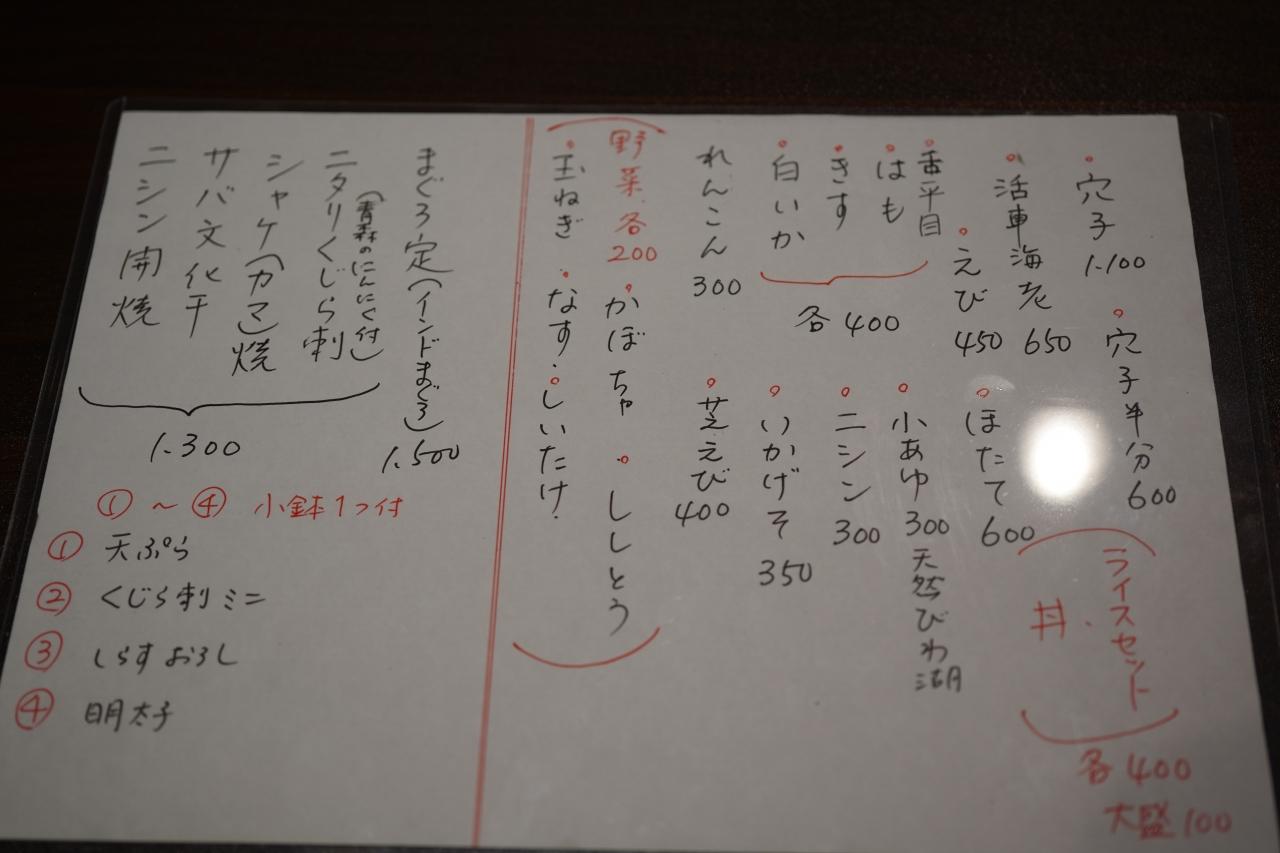 穴子 1.100
穴子半分 600
活車海老 650
えび 450
ほたて 600
舌平目
はも
きす
白いか
各400
小あゆ 300 天然びわ湖
ニシン 300
いかげそ 350
れんこん 300
芝えび 400
ライスセット
丼.
各400
大盛100
野菜各200
かぼちゃ
ししとう
玉ねぎ
なす.
しいたけ.
まぐろ定(インドまぐろ) 1.500
ニタリくじら刺
(青森のにんにく付)
シャケ(カマ)焼
サバ文化干
ニシン開焼
1.300
①〜④ 小鉢1つ付
① 天ぷら
② くじら刺ミニ
③ しらすおろし
④ 明太子